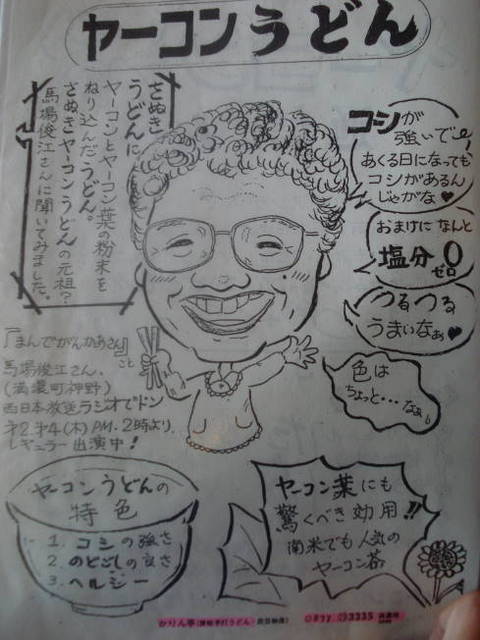 ヤーコンうどん
さぬき
うどんに
ヤーコンとヤーコン葉の粉末を
ねり込んだうどん。
さぬきヤーコンうどんの元祖?
馬場俊江さんに聞いてみました。
コシが
強いで
あくる日になっても
コシがあるん
じゃがな♥
おまけになんと
塩分0
ゼロ
つるつる
うまいなぁ♥
色は
ちょっと…なぁ。
『まんでがんかあさん』
こと
馬場俊江さん。
(満濃町神野)
西日本放送ラジオでドン
才2才4(木)PM.2時より
レギュラー出演中!
ヤーコンうどんの
特色
1. コシの強さ
2. のどごしの良さ
3. ヘルシー
ヤーコン葉にも
驚くべき効用!!
南米でも人気の
ヤーコン茶
かりん亭
3335